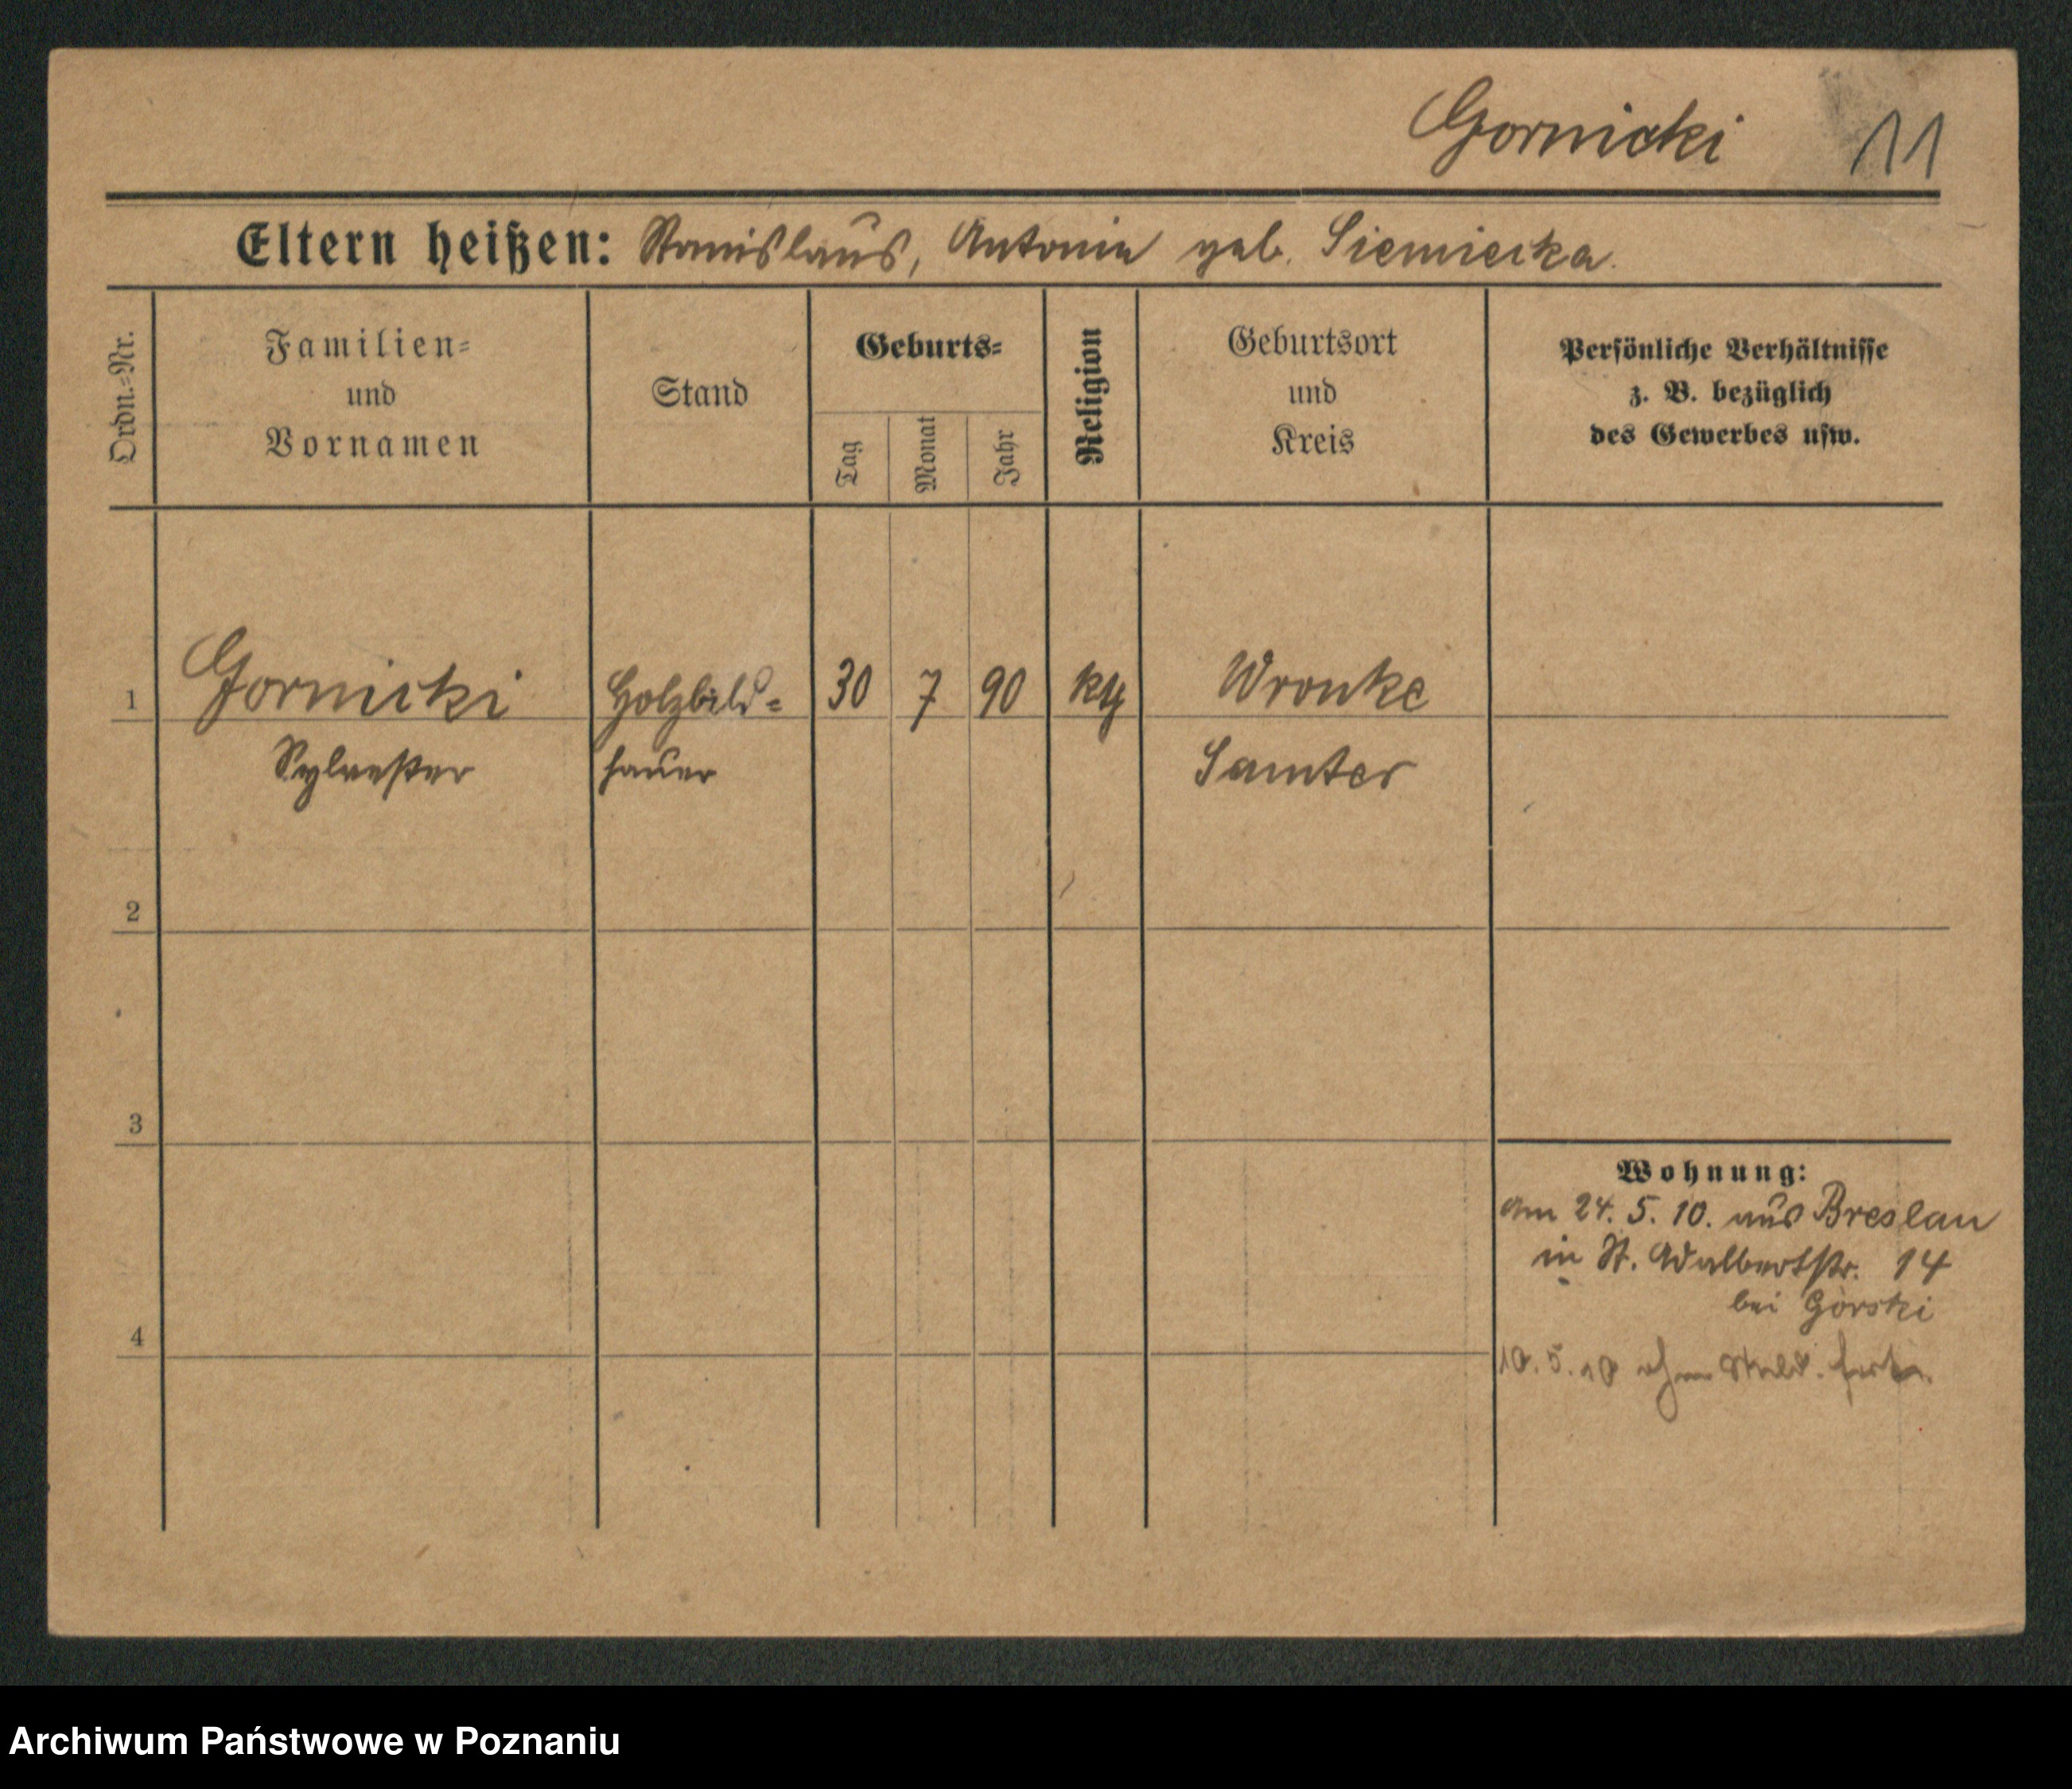 Gornicki 11
Eltern heißen: Stanislaus, Antonie geb. Siemiecka.
Ordn.=Nr.
Familien=
und
Vornamen
Stand
Geburts=
Tag
Monat
Jahr
Religion
Geburtsort
und
Kreis
Persönliche Verhältnisse
z. B. bezüglich
des Gewerbes usw.
1 Gornicki Holzbild= 30 7 90 kth Wronke
Sylvester hauer Samter
2
3
Wohnung:
Am 24. 5. 10. aus Breslau
in St. Adalbertstr. 14
bei Górski
4
10. 5. 10 ohne
Archiwum Państwowe w Poznaniu